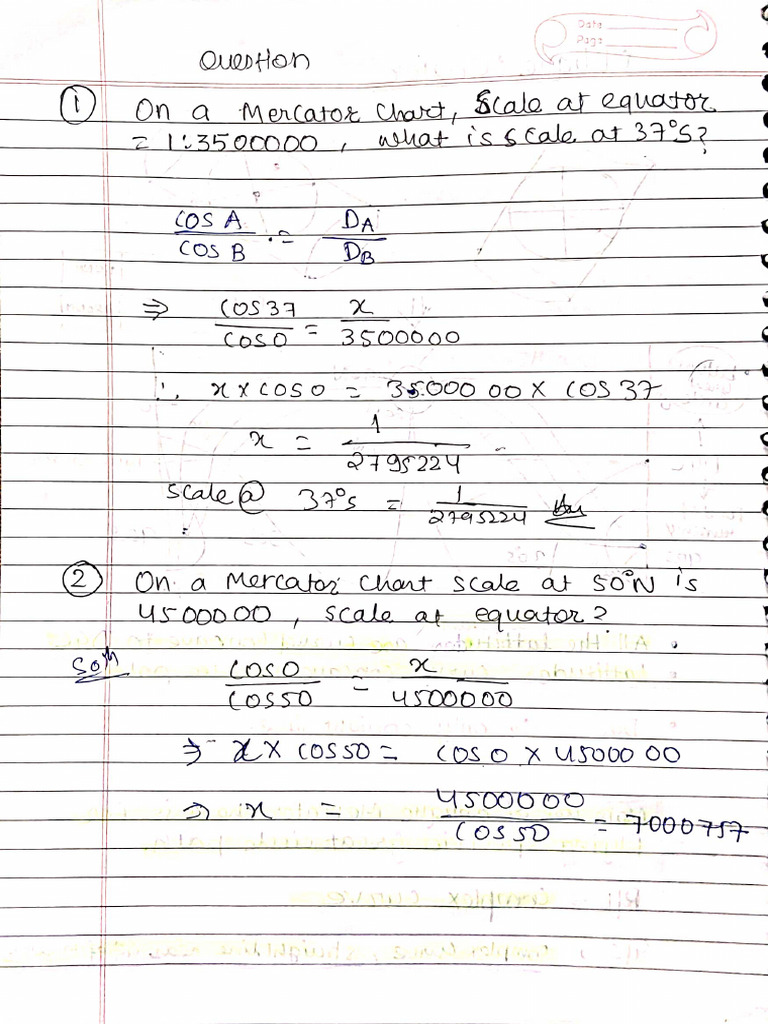 Date
Page
Question
① On a Mercator chart, Scale at equator
= 1:3500000, what is scale at 37°S?
COS A / COS B = D_A / D_B
⇒ COS37 / COS0 = x / 3500000
∴ x × COS 0 = 3500000 × COS 37
x = 1 / 2795224
scale @ 37°S = 1 / 2795224 Ans
② On a Mercator chart scale at 50°N is
4500000, scale at equator?
Soln COS0 / COS50 = x / 4500000
⇒ x × COS50 = COS 0 × 4500000
⇒ x = 4500000 / COS 50 = 7000757